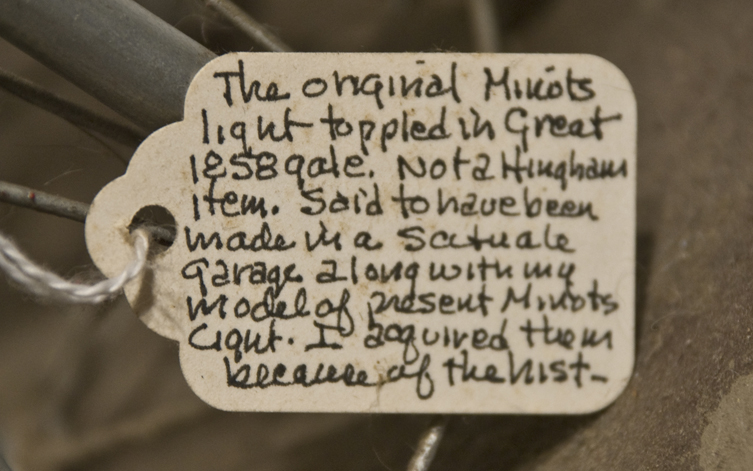 The original Minots
light toppled in Great
1858 gale. Not a Hingham
item. Said to have been
made in a Scituate
garage along with my
model of present Minots
Light. I acquired them
because of the hist-